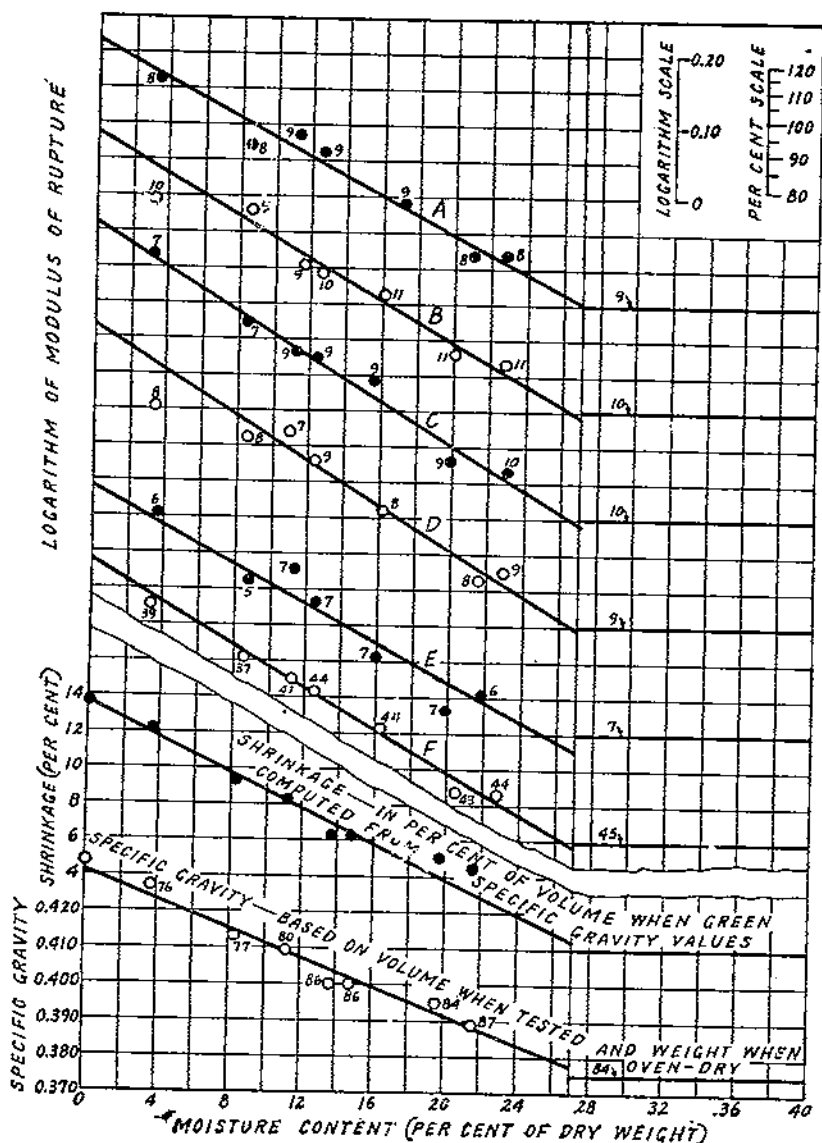 LOGARITHM OF MODULUS OF RUPTURE
LOGARITHM SCALE
0.20
0.10
0
PER CENT SCALE
120
110
100
90
80
8
8
9
9
9
A
8
8
9
10
9
10
11
B
11
11
10
7
7
9
9
9
C
9
10
10
8
8
7
9
8
D
8
9
9
6
5
7
7
7
E
7
6
7
39
37
41
44
44
F
43
44
45
SHRINKAGE (PER CENT)
14
12
10
8
6
4
SHRINKAGE—IN PER CENT OF VOLUME WHEN GREEN
COMPUTED FROM SPECIFIC GRAVITY VALUES
SPECIFIC GRAVITY
0.420
0.410
0.400
0.390
0.380
0.370
SPECIFIC GRAVITY—BASED ON VOLUME WHEN TESTED
AND WEIGHT WHEN
OVEN-DRY
76
77
80
86
86
84
87
84
0 4 8 12 16 20 24 28 32 36 40
MOISTURE CONTENT (PER CENT OF DRY WEIGHT)